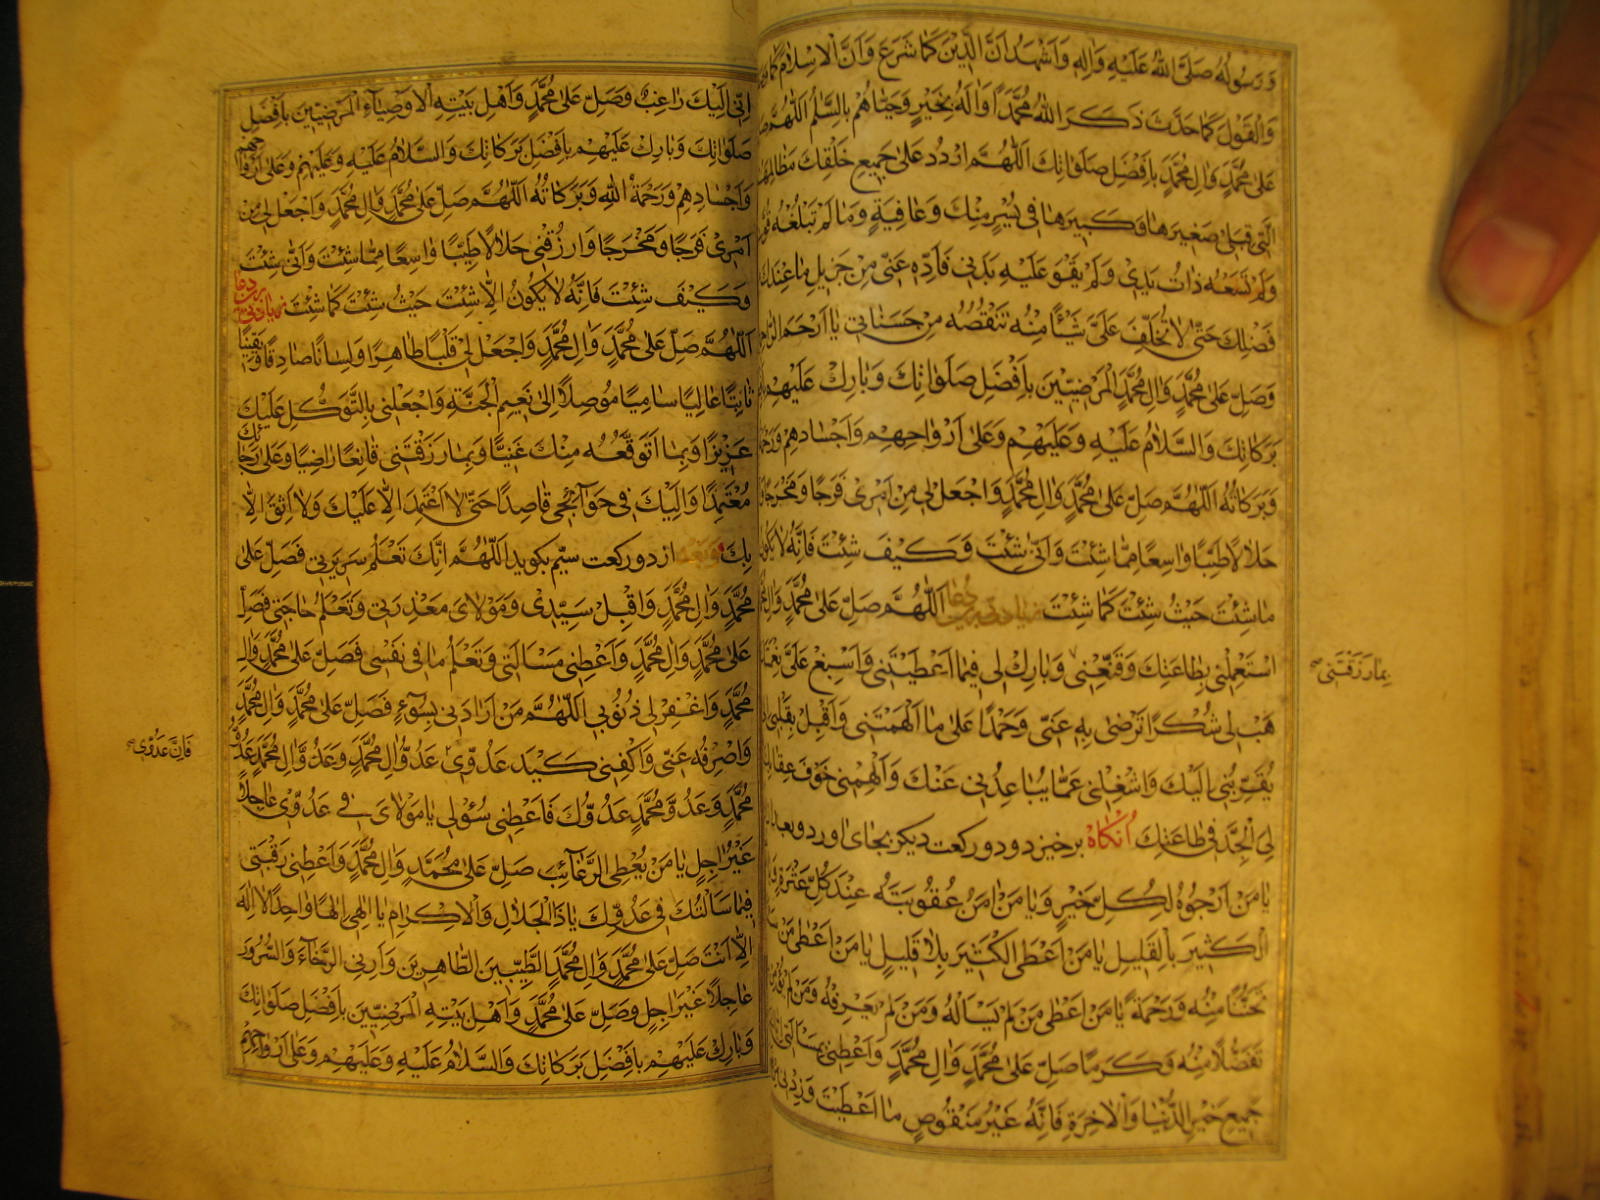 وَرَسُولُهُ صَلَّى اللهُ عَلَيْهِ وَاٰلِهِ وَاَشْهَدُ اَنَّ الدّينَ كَمٰا شَرَعَ وَاَنَّ الْاِسْلٰامَ كَمٰا
وَالْقَوْلَ كَمٰا حَدَّثَ ذَكَرَ اللهُ مُحَمَّدًا وَاٰلَهُ بِخَيْرٍ وَحَيّٰاهُمْ بِالسَّلٰمِ اَللّٰهُمَّ
عَلىٰ مُحَمَّدٍ وَاٰلِ مُحَمَّدٍ بِاَفْضَلِ صَلَوٰاتِكَ اَللّٰهُمَّ ارْدُدْ عَلىٰ جَميعِ خَلْقِكَ مَظٰالِمَهُمُ
الَّتي قِبَلي صَغيرَهٰا وَكَبيرَهٰا في يُسْرٍ مِنْكَ وَعٰافِيَةٍ وَمٰا لَمْ تَبْلُغْهُ
وَلَمْ تَسَعْهُ ذٰاتُ يَدي وَلَمْ يَقْوَ عَلَيْهِ بَدَني فَاَدِّهِ عَنّي مِنْ جَزيلِ مٰا عِنْدَكَ
فَضْلِكَ حَتّىٰ لٰا تُخَلِّفَ عَلَيَّ شَيْئًا مِنْهُ تَنْقُصُهُ مِنْ حَسَنٰاتي يٰا اَرْحَمَ
وَصَلِّ عَلىٰ مُحَمَّدٍ وَاٰلِ مُحَمَّدٍ الْمَرْضِيّينَ بِاَفْضَلِ صَلَوٰاتِكَ وَبٰارِكْ عَلَيْهِمْ
بَرَكٰاتِكَ وَالسَّلٰامُ عَلَيْهِ وَعَلَيْهِمْ وَعَلىٰ اَرْوٰاحِهِمْ وَاَجْسٰادِهِمْ
وَبَرَكٰاتُهُ اَللّٰهُمَّ صَلِّ عَلىٰ مُحَمَّدٍ وَاٰلِ مُحَمَّدٍ وَاجْعَلْ لي مِنْ اَمْري فَرَجًا وَمَخْرَجًا
حَلٰالًا طَيِّبًا وٰاسِعًا مِمّٰا شِئْتَ وَاَنّىٰ شِئْتَ وَكَيْفَ شِئْتَ فَاِنَّهُ لٰا يَكُونُ
مٰا شِئْتَ حَيْثُ شِئْتَ كَمٰا شِئْتَ اَللّٰهُمَّ صَلِّ عَلىٰ مُحَمَّدٍ وَاٰلِ
اسْتَعْمِلْني بِطٰاعَتِكَ وَقَنِّعْني وَبٰارِكْ لي فيمٰا اَعْطَيْتَني وَاَسْبِغْ عَلَيَّ
بِمٰا رَزَقْتَني
هَبْ لي شُكْرًا تَرْضىٰ بِهِ عَنّي وَحَمْدًا عَلىٰ مٰا اَلْهَمْتَني وَاَقْبِلْ بِقَلْبي
يُقَرِّبُني اِلَيْكَ وَاشْغِلْني عَمّٰا يُبٰاعِدُني عَنْكَ وَاَلْهِمْني خَوْفَ
لِيَ الْجِدَّ في طٰاعَتِكَ اُنكاه برخيز دو دو ركعت ديكر بجاى اور
يٰا مَنْ اَرْجُوهُ لِكُلِّ خَيْرٍ وَيٰا مَنْ اٰمَنُ عُقُوبَتَهُ عِنْدَ كُلِّ عَثْرَةٍ
الْكَثيرَ بِالْقَليلِ يٰا مَنْ اَعْطَى الْكَثيرَ بِلٰا قَليلٍ يٰا مَنْ اَعْطىٰ مَنْ
تَحَنُّنًا مِنْهُ وَرَحْمَةً يٰا مَنْ اَعْطىٰ مَنْ لَمْ يَسْاَلْهُ وَمَنْ لَمْ يَعْرِفْهُ وَمَنْ لَمْ
تَفَضُّلًا مِنْهُ وَكَرَمًا صَلِّ عَلىٰ مُحَمَّدٍ وَاٰلِ مُحَمَّدٍ وَاَعْطِني بِمَسْاَلَتي
جَميعَ خَيْرِ الدُّنْيٰا وَالْاٰخِرَةِ فَاِنَّهُ غَيْرُ مَنْقُوصٍ مٰا اَعْطَيْتَ وَزِدْني
اِنّي اِلَيْكَ رٰاغِبٌ وَصَلِّ عَلىٰ مُحَمَّدٍ وَاَهْلِ بَيْتِهِ الْاَوْصِيٰاءِ الْمَرْضِيّينَ بِاَفْضَلِ
صَلَوٰاتِكَ وَبٰارِكْ عَلَيْهِمْ بِاَفْضَلِ بَرَكٰاتِكَ وَالسَّلٰامُ عَلَيْهِ وَعَلَيْهِمْ وَعَلىٰ اَرْوٰاحِهِمْ
وَاَجْسٰادِهِمْ وَرَحْمَةُ اللهِ وَبَرَكٰاتُهُ اَللّٰهُمَّ صَلِّ عَلىٰ مُحَمَّدٍ وَاٰلِ مُحَمَّدٍ وَاجْعَلْ لي مِنْ
اَمْري فَرَجًا وَمَخْرَجًا وَارْزُقْني حَلٰالًا طَيِّبًا وٰاسِعًا مِمّٰا شِئْتَ وَاَنّىٰ شِئْتَ
وَكَيْفَ شِئْتَ فَاِنَّهُ لٰا يَكُونُ اِلّٰا شِئْتَ حَيْثُ شِئْتَ كَمٰا شِئْتَ
اَللّٰهُمَّ صَلِّ عَلىٰ مُحَمَّدٍ وَاٰلِ مُحَمَّدٍ وَاجْعَلْ لي قَلْبًا طٰاهِرًا وَلِسٰانًا صٰادِقًا وَيَقينًا
ثٰابِتًا عٰالِيًا سٰامِيًا مُوصِلًا اِلىٰ نَعيمِ الْجَنَّةِ وَاجْعَلْني بِالتَّوَكُّلِ عَلَيْكَ
عَزيزًا وَبِمٰا اَتَوَقَّعُهُ مِنْكَ غَنِيًّا وَبِمٰا رَزَقْتَني قٰانِعًا رٰاضِيًا وَعَلىٰ رَجٰائِكَ
مُعْتَمِدًا وَاِلَيْكَ في حَوٰائِجي قٰاصِدًا حَتّىٰ لٰا اَعْتَمِدَ اِلّٰا عَلَيْكَ وَلٰا اَثِقَ اِلّٰا
بِكَ وبعد از دو ركعت سيّم بكويد اَللّٰهُمَّ اِنَّكَ تَعْلَمُ سَريرَتي فَصَلِّ عَلىٰ
مُحَمَّدٍ وَاٰلِ مُحَمَّدٍ وَاقْبَلْ سَيِّدي وَمَوْلٰايَ مَعْذِرَتي وَتَعْلَمُ حٰاجَتي فَصَلِّ
عَلىٰ مُحَمَّدٍ وَاٰلِ مُحَمَّدٍ وَاَعْطِني مَسْاَلَتي وَتَعْلَمُ مٰا في نَفْسي فَصَلِّ عَلىٰ مُحَمَّدٍ وَاٰلِ
مُحَمَّدٍ وَاغْفِرْ لي ذُنُوبي اَللّٰهُمَّ مَنْ اَرٰادَني بِسُوٓءٍ فَصَلِّ عَلىٰ مُحَمَّدٍ وَاٰلِ مُحَمَّدٍ
وَاصْرِفْهُ عَنّي وَاكْفِني كَيْدَ عَدُوّي عَدُوُّ اٰلِ مُحَمَّدٍ وَعَدُوُّ اٰلِ مُحَمَّدٍ عَدُوُّ
فَاِنَّ عَدُوّي
مُحَمَّدٍ وَعَدُوُّ مُحَمَّدٍ عَدُوُّكَ فَاَعْطِني سُؤْلي يٰا مَوْلٰايَ في عَدُوّي عٰاجِلًا
غَيْرَ اٰجِلٍ يٰا مَنْ يُعْطِي الرَّغٰائِبَ صَلِّ عَلىٰ مُحَمَّدٍ وَاٰلِ مُحَمَّدٍ وَاَعْطِني رَغْبَتي
فيمٰا سَاَلْتُكَ في عَدُوِّكَ يٰا ذَا الْجَلٰالِ وَالْاِكْرٰامِ يٰا اِلٰهي اِلٰهًا وٰاحِدًا لٰا اِلٰهَ
اِلّٰا اَنْتَ صَلِّ عَلىٰ مُحَمَّدٍ وَاٰلِ مُحَمَّدٍ الطَّيِّبينَ الطّٰاهِرينَ وَاَرِنِي الرَّخٰاءَ وَالسُّرُورَ
عٰاجِلًا غَيْرَ اٰجِلٍ وَصَلِّ عَلىٰ مُحَمَّدٍ وَاَهْلِ بَيْتِهِ الْمَرْضِيّينَ بِاَفْضَلِ صَلَوٰاتِكَ
وَبٰارِكْ عَلَيْهِمْ بِاَفْضَلِ بَرَكٰاتِكَ وَالسَّلٰامُ عَلَيْهِ وَعَلَيْهِمْ وَعَلىٰ اَرْوٰاحِهِمْ